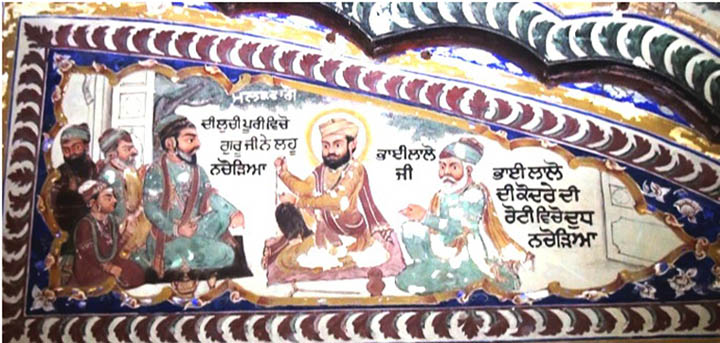 ਦੀ ਲੁਚੀ ਪੂਰੀ ਵਿਚੋ
ਗੁਰੂ ਜੀ ਨੇ ਲਹੂ
ਨਚੋੜਿਆ
ਭਾਈ ਲਾਲੋ
ਜੀ
ਭਾਈ ਲਾਲੋ
ਦੀ ਕੋਦਰੇ ਦੀ
ਰੋਟੀ ਵਿਚੋ ਦੁਧ
ਨਚੋੜਿਆ